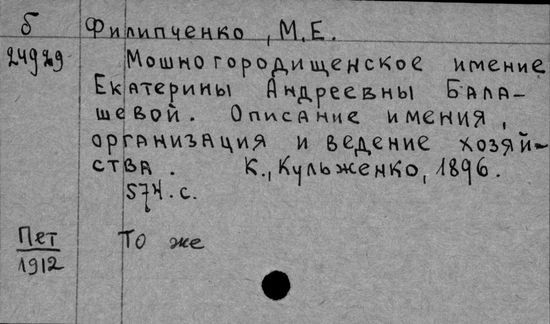 б Филипченко, М.Е.
24929 Мошногородищенское имение
Екатерины Андреевны Бала-
шевой. Описание имения,
организация и ведение хозяй-
ства. К., Кульженко, 1896.
574. с.
Пет То же
1912